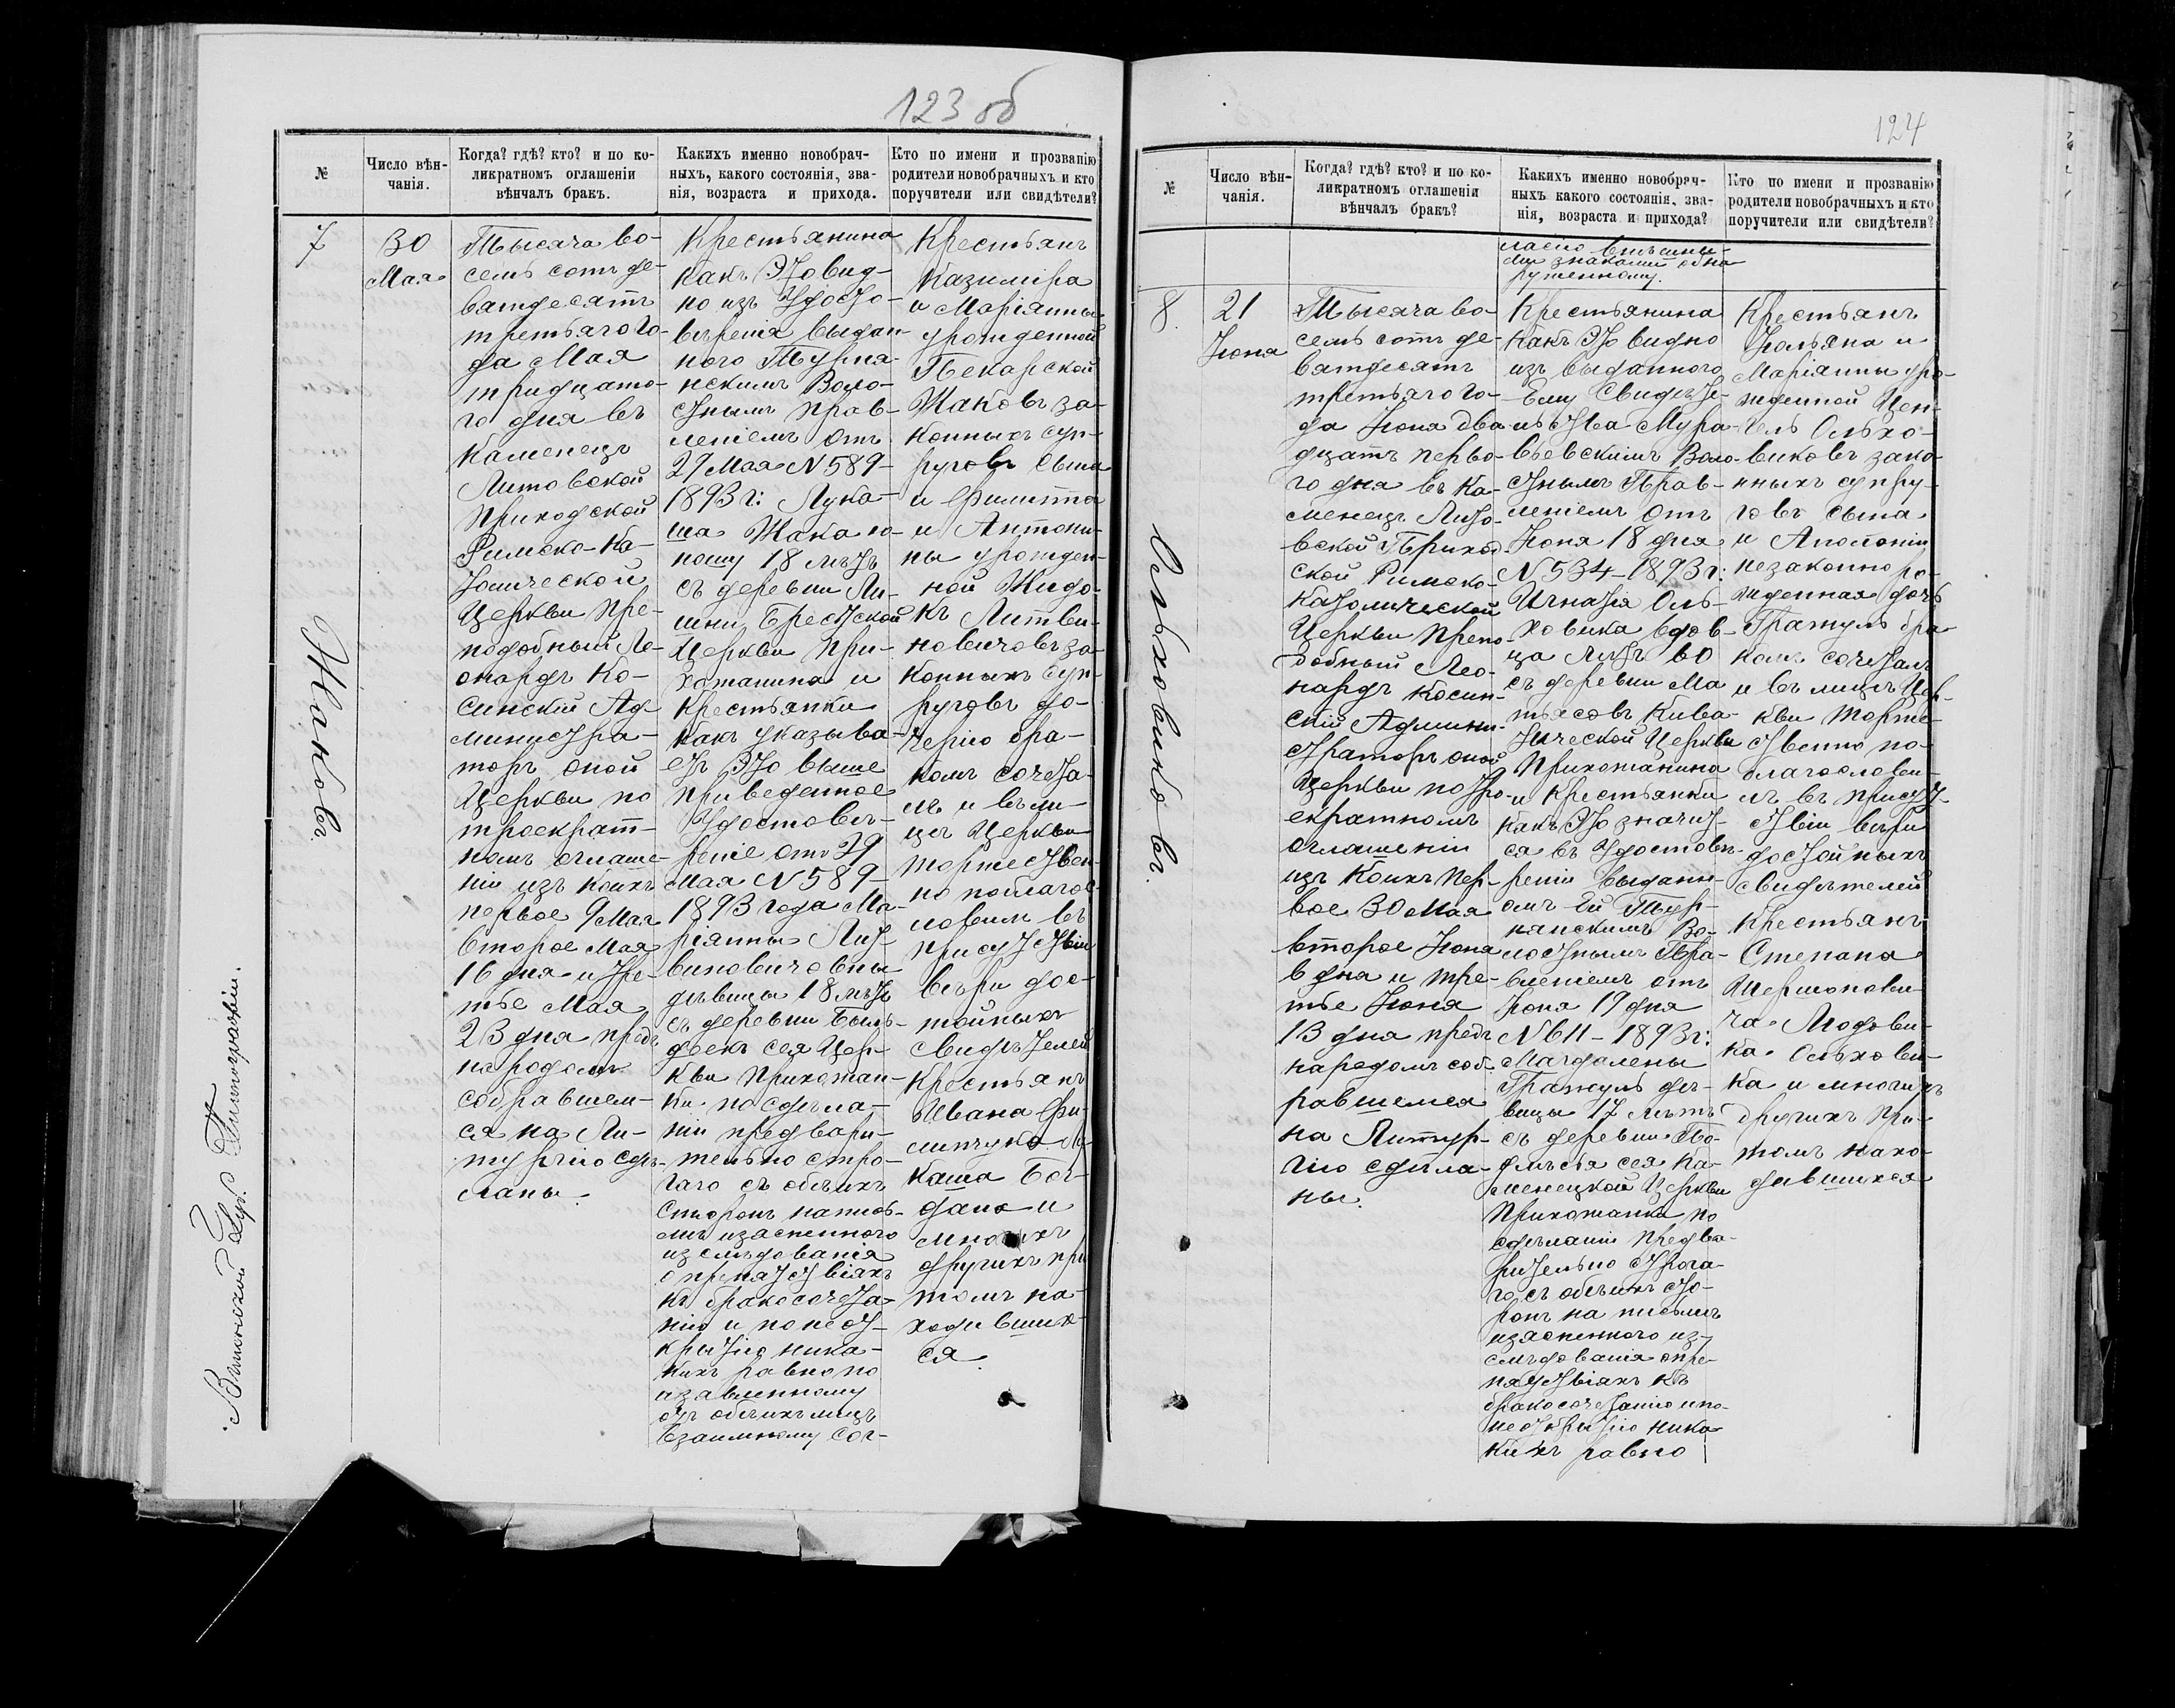 123 об
№
Число вѣн-
чанія.
Когда? гдѣ? кто? и по ко-
ликратномъ оглашеніи
вѣнчалъ бракъ.
Какихъ именно новобрач-
ныхъ, какого состоянія, зва-
нія, возраста и прихода.
Кто по имени и прозванію
родители новобрачныхъ и кто
поручители или свидѣтели?
7
30
Мая
Тысяча во-
семь сотъ де-
вятдесятъ
третьяго го-
да Мая
тридцато-
го дня въ
Каменецъ
Литовской
приходской
Римско-Ка-
толической
Церкви Пре-
подобный Ле-
онардъ Ко-
синскій Ад-
министра-
торъ оной
Церкви по
троекрат-
номъ оглаше-
ніи изъ коихъ
первое 9 Мая
второе Мая
16 дня и тре-
тье Мая
23 дня предъ
народомъ
собравшем-
ся на Ли-
тургію сдѣ-
ланы.
Крестьянина
какъ это вид-
но изъ удосто-
веренія выдан-
ного Турна-
нскимъ Воло-
стнымъ Прав-
леніемъ отъ
29 Мая N 589-
1893 г: Лука-
ша Жака ю-
ношу 18 лѣтъ
съ деревни Ли-
шни Брестской
Церкви При-
хожанина и
Крестьянки
какъ указыва-
етъ это выше
приведенное
Удостове-
реніе отъ 29
Мая N 589-
1893 года Ма-
ріянны Лит-
виновичовны
дѣвицы 18 лѣтъ
съ деревни
сея Цер-
кви Прихожан-
ки по сдѣла-
ніи предвари-
тельно стро-
гаго съ обѣихъ
сторонъ напись-
мѣ изясненного
изслѣдованія
о препятствіяхъ
къ бракосочета-
нію и по неот-
крытію ника-
кихъ равно по
изявленному
отъ обѣихъ лицъ
взаимному сог-
Крестьянъ
Казиміра
и Маріянны
урожденной
Пекарской
Жаковъ за-
конныхъ суп-
руговъ сына
и Филиппа
и Антони-
ны урожден-
ной Жидо-
къ Литви-
новичовъ за-
конныхъ суп-
руговъ до-
черію бра-
комъ сочета-
лъ и въ ли-
цѣ Церкви
торжествен-
но поблагос-
ловилъ въ
присутствіи
вѣри дос-
тойныхъ
свидѣтелей
Крестьянъ
Ивана Фи-
липчука Лу-
каша Бог-
дана и
многихъ
другихъ при
томъ на-
ходивших-
ся.
Жаковъ.
Виленской Губ. Типографіи.
124
№
Число вѣн-
чанія.
Когда? гдѣ? кто? и по ко-
ликратномъ оглашеніи
вѣнчалъ бракъ?
Какихъ именно новобрач-
ныхъ какого состоянія, зва-
нія, возраста и прихода?
Кто по имени и прозванію
родители новобрачныхъ и кто
поручители или свидѣтели?
ласію внѣшны-
ми знаками обна
руженному.
8.
21
Іюня
Тысяча во-
семь сотъ де-
вятдесятъ
третьяго го-
да Іюня два-
дцать перво-
го дня въ Ка-
менецъ Лито-
вской Приход-
ской Римско-
Католической
Церкви Препо-
добный Лео-
нардъ Косин-
скій Админи-
страторъ оной
Церкви по тро-
екратномъ
оглашеніи
изъ коихъ пер-
вое 30 Мая
второе Іюня
6 дня и тре-
тье Іюня
13 дня предъ
народомъ соб-
равшемся
на Литур-
гію сдѣла-
ны.
Крестьянина
какъ это видно
изъ выданного
Ему Свидѣте-
льства Мура-
вьевскимъ Воло-
стнымъ Прав-
леніемъ отъ
Іюня 18 дня
N 534-1893 г:
Игнатія Оль-
ховика вдов-
ца лѣтъ 60
съ деревни Ма
тясовъ Кива-
тической Церкви
Прихожанина
и Крестьянки
какъ это значит-
ся въ Удостовѣ-
реніи выданн-
омъ Ей Тур-
нянскимъ Во-
лостнымъ Пра-
вленіемъ отъ
Іюня 19 дня
N 611-1893 г:
Магдалены
Гражуль дѣ-
вицы 17 лѣтъ
съ деревни По-
лѣсья сея Ка-
менецкой Церкви
Прихожанки по
сдѣланіи предва-
рительно строга-
го съ обѣихъ сто-
ронъ на письмѣ
изясненного из-
слѣдованія о пре-
пятствіяхъ къ
бракосочетанію и по
неоткрытію ника-
кихъ равно
Крестьянъ
Юльяна и
Маріянны уро-
жденной
Ольхо-
виковъ зако-
нныхъ супру-
говъ сына
и Аполоніи
незаконно ро-
жденная дочь
Гражуль бра-
комъ сочеталъ
и въ лицѣ Цер-
кви торже-
ственно по-
благослови-
лъ въ присут-
ствіи вѣри
достойныхъ
свидѣтелей
Крестьянъ
Степана
Шермонови-
ча Людови-
ка Ольхови-
ка и многихъ
другихъ при
томъ нахо-
дившихся
Ольховиковъ.